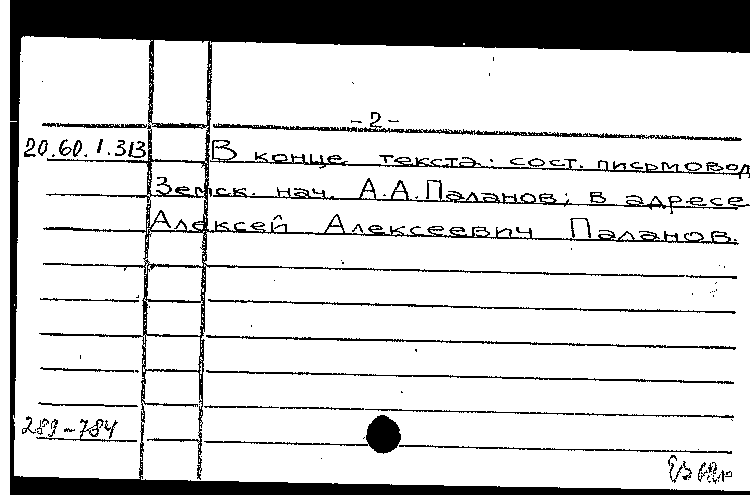 -2-
20.60.1.313 В конце текста: сост. письмовод
Земск. нач. А.А.Паланов; в адресе
Алексей Алексеевич Паланов.
289-784